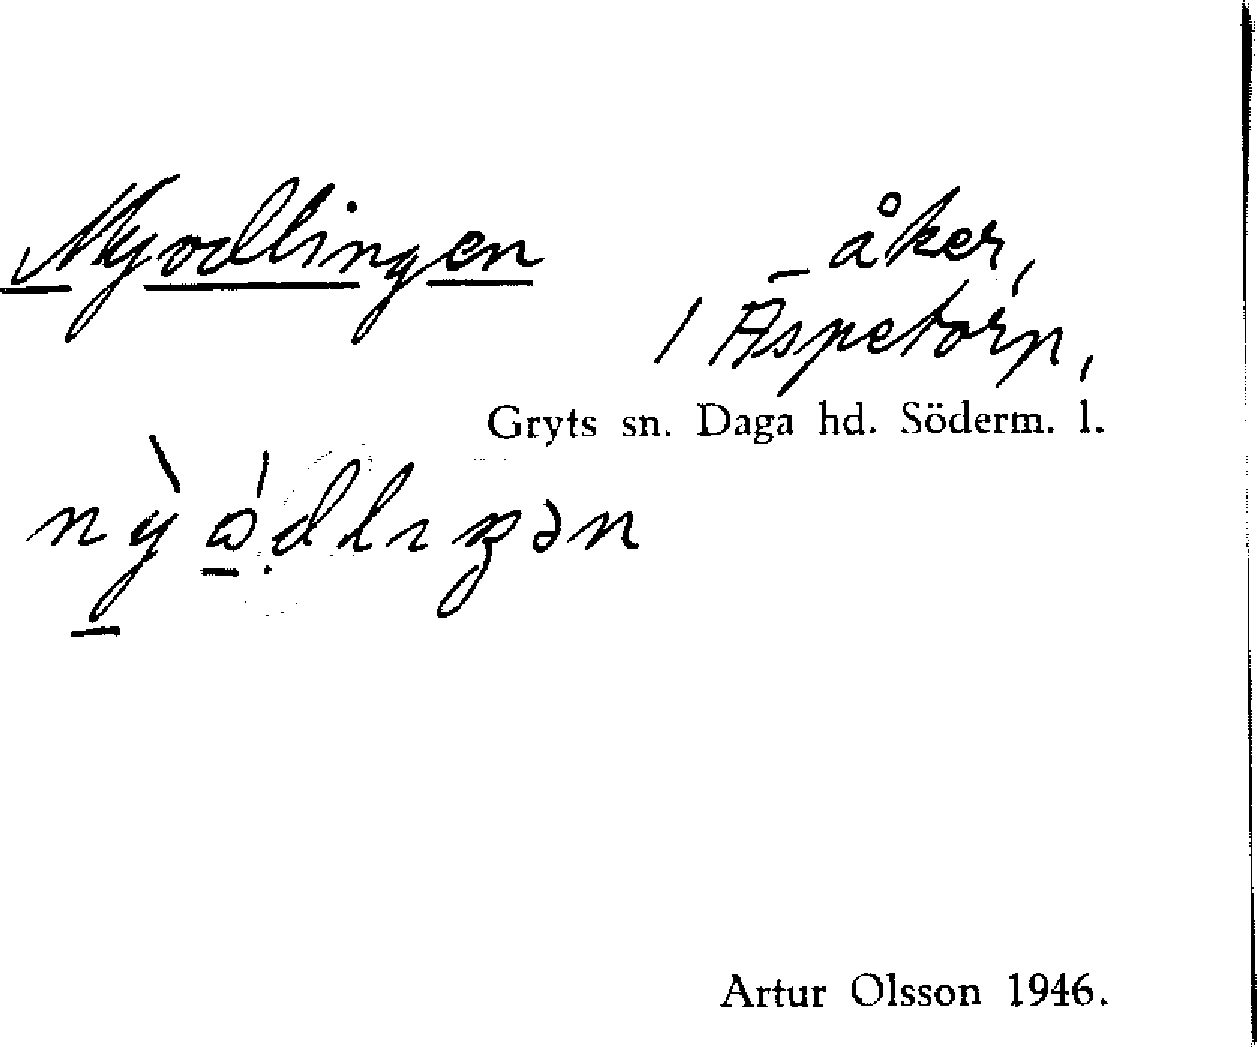 Nyodlingen
– åker,
1 Aspetorp,
Gryts sn. Daga hd. Söderm. l.
Artur Olsson 1946.